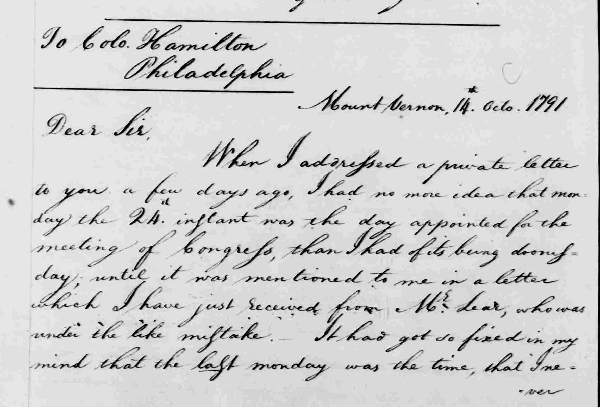 To Colo. Hamilton
Philadelphia
Mount Vernon, 14th. Octo. 1791
Dear Sir,
When I addressed a private letter
to you a few days ago, I had no more idea that mon-
day the 24th. instant was the day appointed for the
meeting of Congress, than I had of its being dooms-
day; until it was mentioned to me in a letter
which I have just received from Mr. Lear, who was
under the like mistake. — It had got so fixed in my
mind that the last monday was the time, that I ne-
-ver